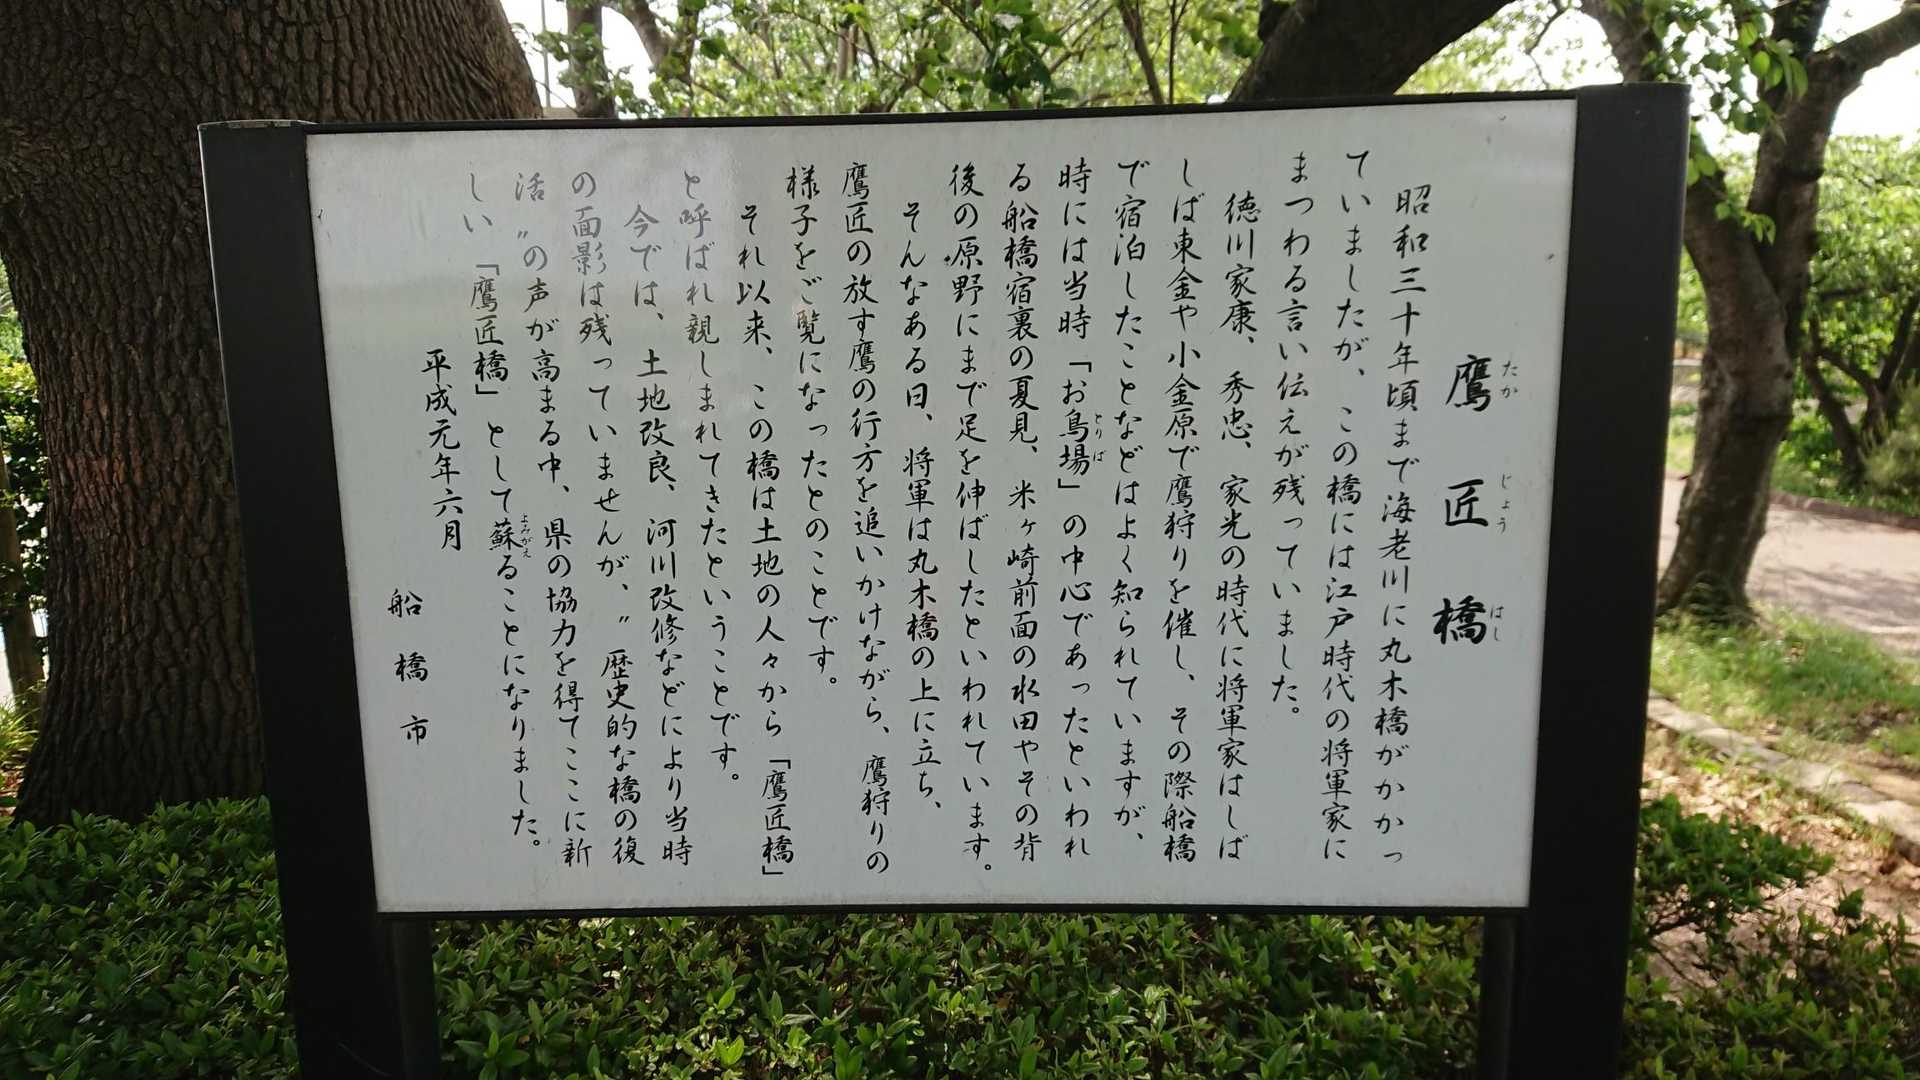 鷹匠橋
たか じょう はし
昭和三十年頃まで海老川に丸木橋がかかっ
ていましたが、この橋には江戸時代の将軍家に
まつわる言い伝えが残っていました。
徳川家康、秀忠、家光の時代に将軍家はしば
しば東金や小金原で鷹狩りを催し、その際船橋
で宿泊したことなどはよく知られていますが、
時には当時「お鳥場」の中心であったといわれ
とりば
る船橋宿裏の夏見、米ヶ崎前面の水田やその背
後の原野にまで足を伸ばしたといわれています。
そんなある日、将軍は丸木橋の上に立ち、
鷹匠の放す鷹の行方を追いかけながら、鷹狩りの
様子をご覧になったとのことです。
それ以来、この橋は土地の人々から「鷹匠橋」
と呼ばれ親しまれてきたということです。
今では、土地改良、河川改修などにより当時
の面影は残っていませんが、〃歴史的な橋の復
活〃の声が高まる中、県の協力を得てここに新
しい「鷹匠橋」として蘇ることになりました。
よみがえ
平成元年六月
船橋市